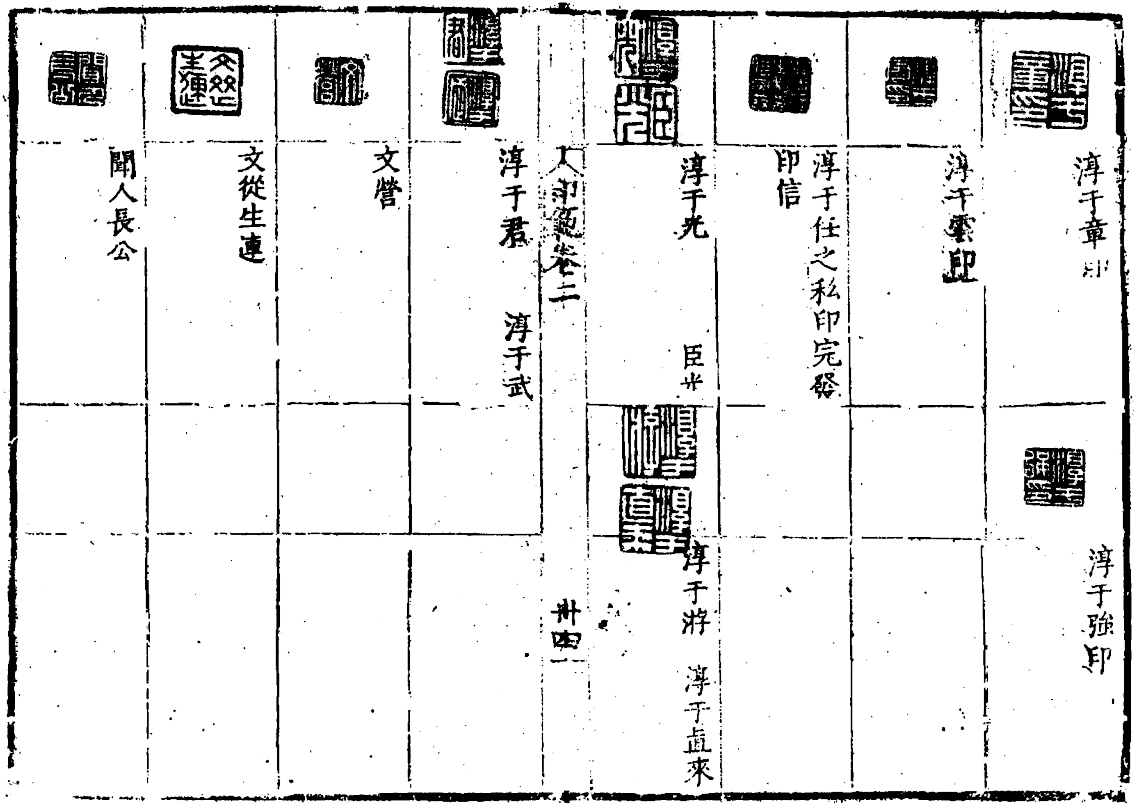 淳于章印
淳于強印
淳于雲印
淳于任之私印完發
印信
淳于光
臣光
淳于游
淳于直來
卷二
卌四
淳于君
淳于武
文營
文從生連
聞人長公